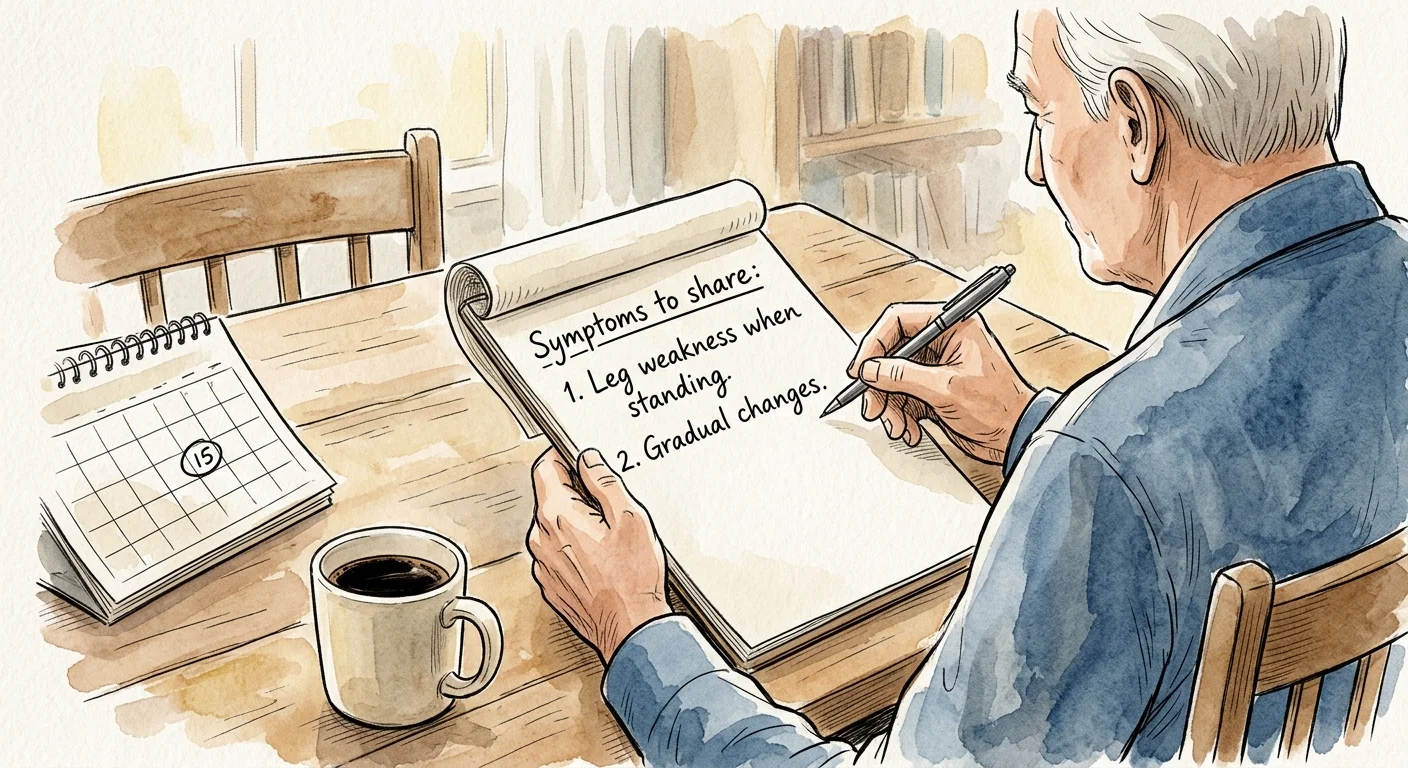 Symptoms to share:
1. Leg weakness when
standing.
2. Gradual changes.
15